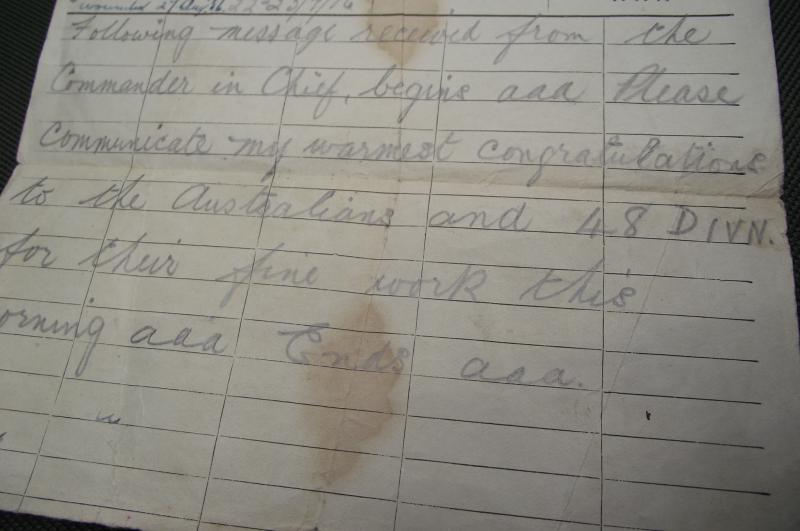 wounded 27 Aug 16. 22-23/7/16
Following message received from the
Commander in Chief, begins aaa Please
Communicate my warmest congratulations
to the Australians and 48 DIVN.
for their fine work this
orning aaa Ends aaa.